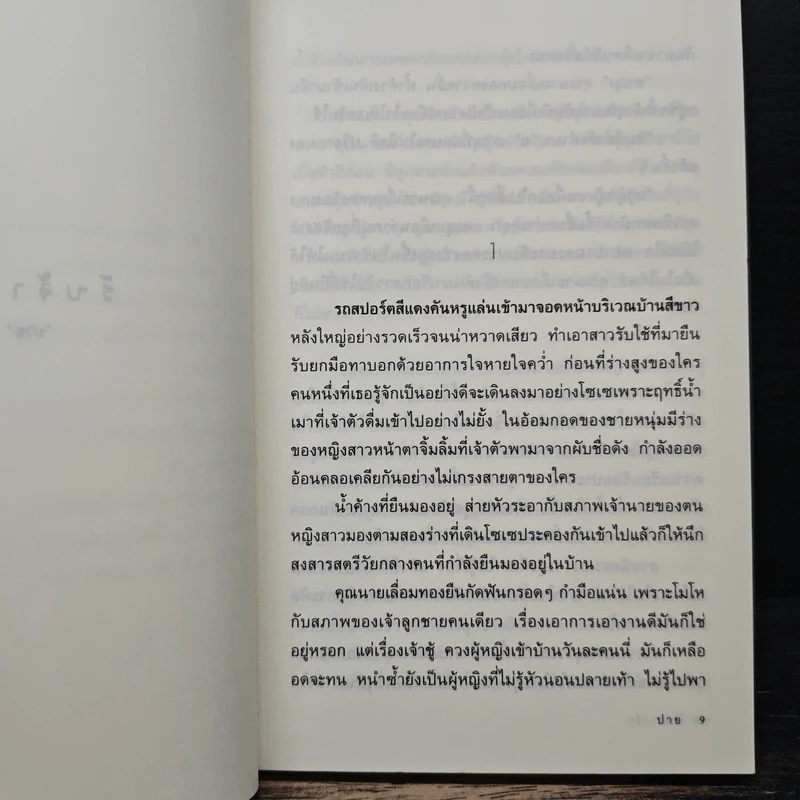 1
รถสปอร์ตสีแดงคันหรูแล่นเข้ามาจอดหน้าบริเวณบ้านสีขาว
หลังใหญ่อย่างรวดเร็วจนน่าหวาดเสียว ทำเอาสาวรับใช้ที่มายืน
รับยกมือทาบอกด้วยอาการใจหายใจคว่ำ ก่อนที่ร่างสูงของใคร
คนหนึ่งที่เธอรู้จักเป็นอย่างดีจะเดินลงมาอย่างโซเซเพราะฤทธิ์น้ำ
เมาที่เจ้าตัวดื่มเข้าไปอย่างไม่ยั้ง ในอ้อมกอดของชายหนุ่มมีร่าง
ของหญิงสาวหน้าตาจิ้มลิ้มที่เจ้าตัวพามาจากผับชื่อดัง กำลังออด
อ้อนคลอเคลียกันอย่างไม่เกรงสายตาของใคร
น้ำค้างที่ยืนมองอยู่ ส่ายหัวระอากับสภาพเจ้านายของตน
หญิงสาวมองตามสองร่างที่เดินโซเซประคองกันเข้าไปแล้วก็ให้นึก
สงสารสตรีวัยกลางคนที่กำลังยืนมองอยู่ในบ้าน
คุณนายเลื่อมทองยืนกัดฟันกรอดๆ กำมือแน่น เพราะโมโห
กับสภาพของเจ้าลูกชายคนเดียว เรื่องเอาการเอางานดีมันก็ใช่
อยู่หรอก แต่เรื่องเจ้าชู้ ควงผู้หญิงเข้าบ้านวันละคนนี่ มันก็เหลือ
อดจะทน หนำซ้ำยังเป็นผู้หญิงที่ไม่รู้หัวนอนปลายเท้า ไม่รู้ไปพา
ปาย 9